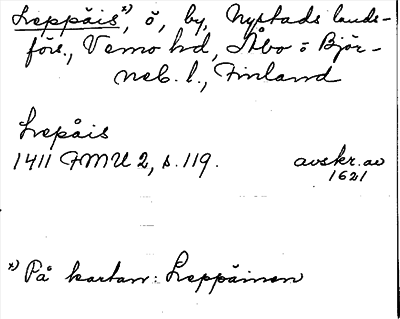 Leppäis*), ö, by, Nystads lands-
förs., Vemo hd, Åbo o Björ-
neb. l., Finland
Lepåis
1411 FMU 2, s. 119. avskr. av
1621
*) På kartan: Leppäinen